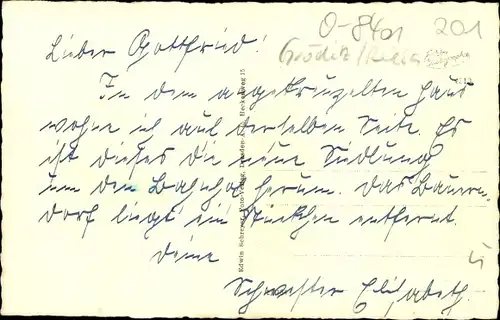 O-8401 201
Gröditz/Riesa
Lieber Gottfried!
In dem angekreuzelten Haus
wohne ich auf derselben Seite. Es
ist dieses die neue Siedlung
um den Bahnhof herum. Das Bauern-
dorf liegt ein Stückchen entfernt.
Deine
Schwester Elisabeth.
Edwin Schr
Dresden